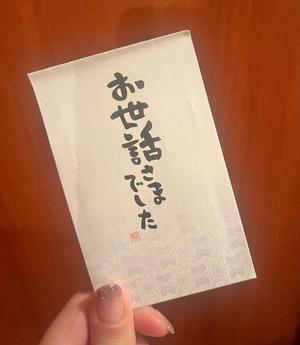 お世話さまでした